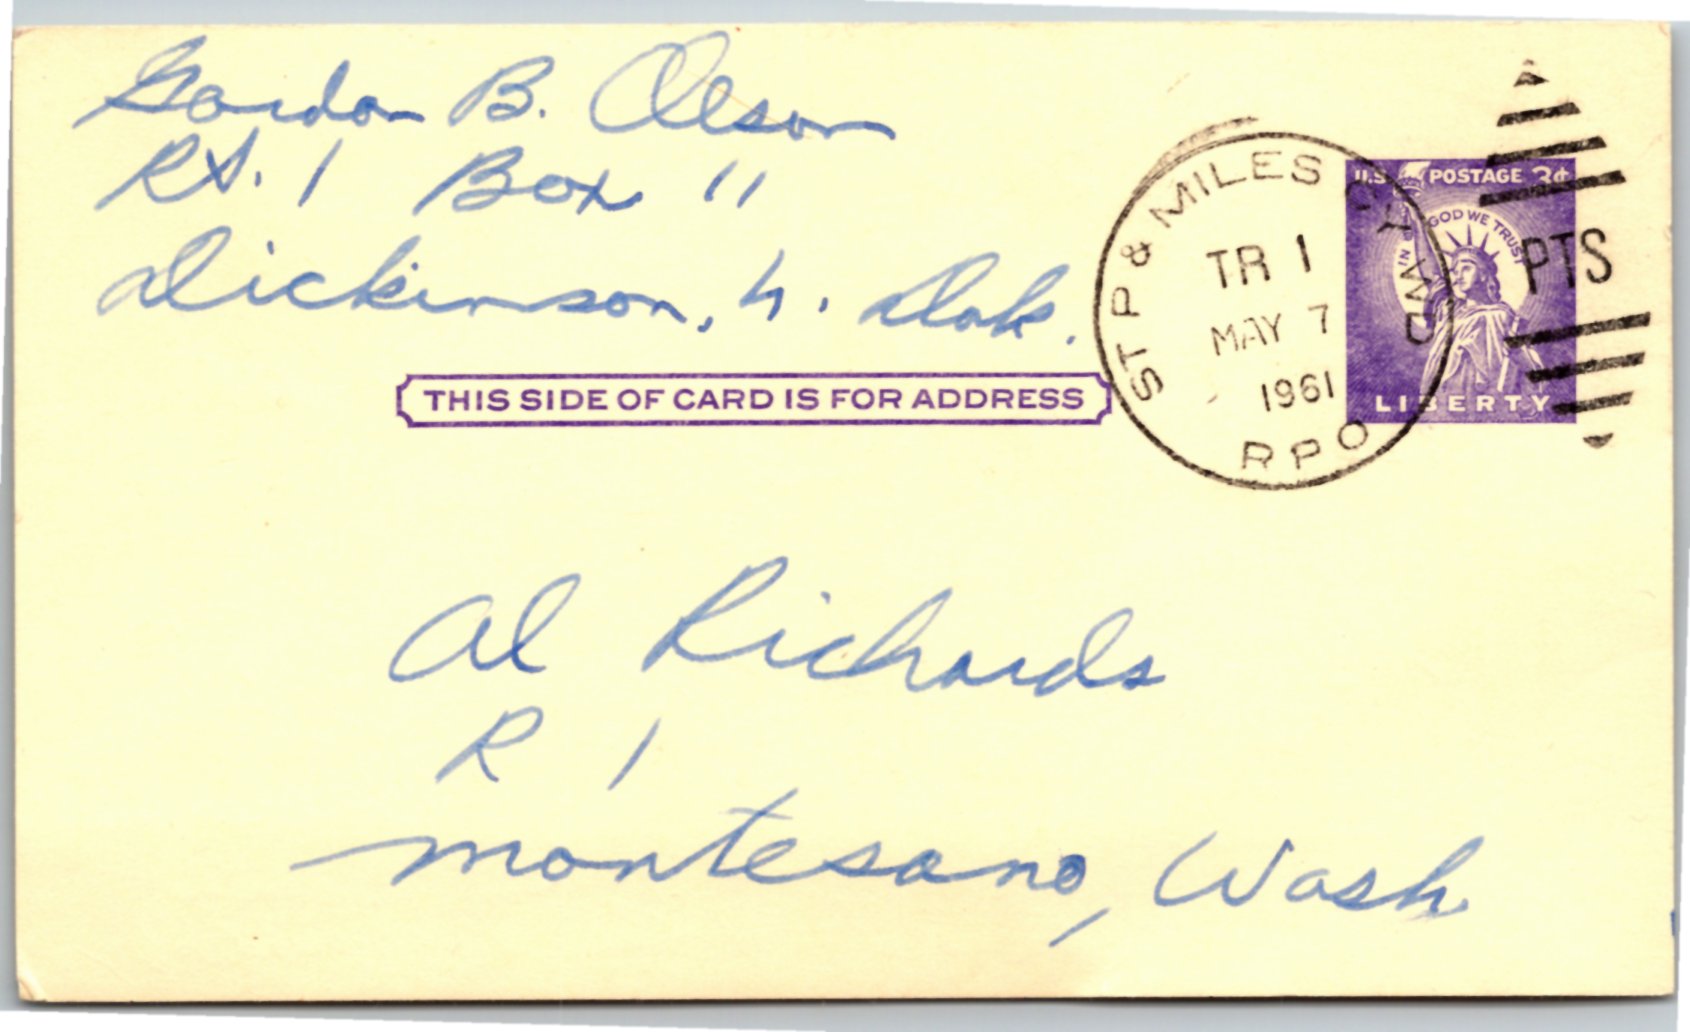 Gordon B. Olson
Rt. 1 Box 11
Dickinson, N. Dak.
THIS SIDE OF CARD IS FOR ADDRESS
ST P & MILES CY WD
TR 1
MAY 7
1961
RPO
U.S. POSTAGE 3¢
IN GOD WE TRUST
LIBERTY
PTS
Al Richards
R 1
Montesano, Wash